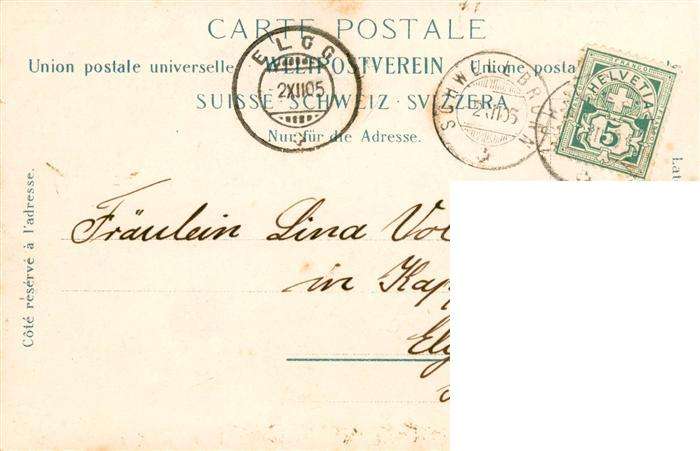 CARTE POSTALE
Union postale universelle. WELTPOSTVEREIN Unione posta
SUISSE · SCHWEIZ · SVIZZERA
Nur für die Adresse.
ELGG
2XII05
SCHWELLBRUNN
2XII05
HELVETIA
5
Côté réservé à l'adresse.
Fräulein Lina
in